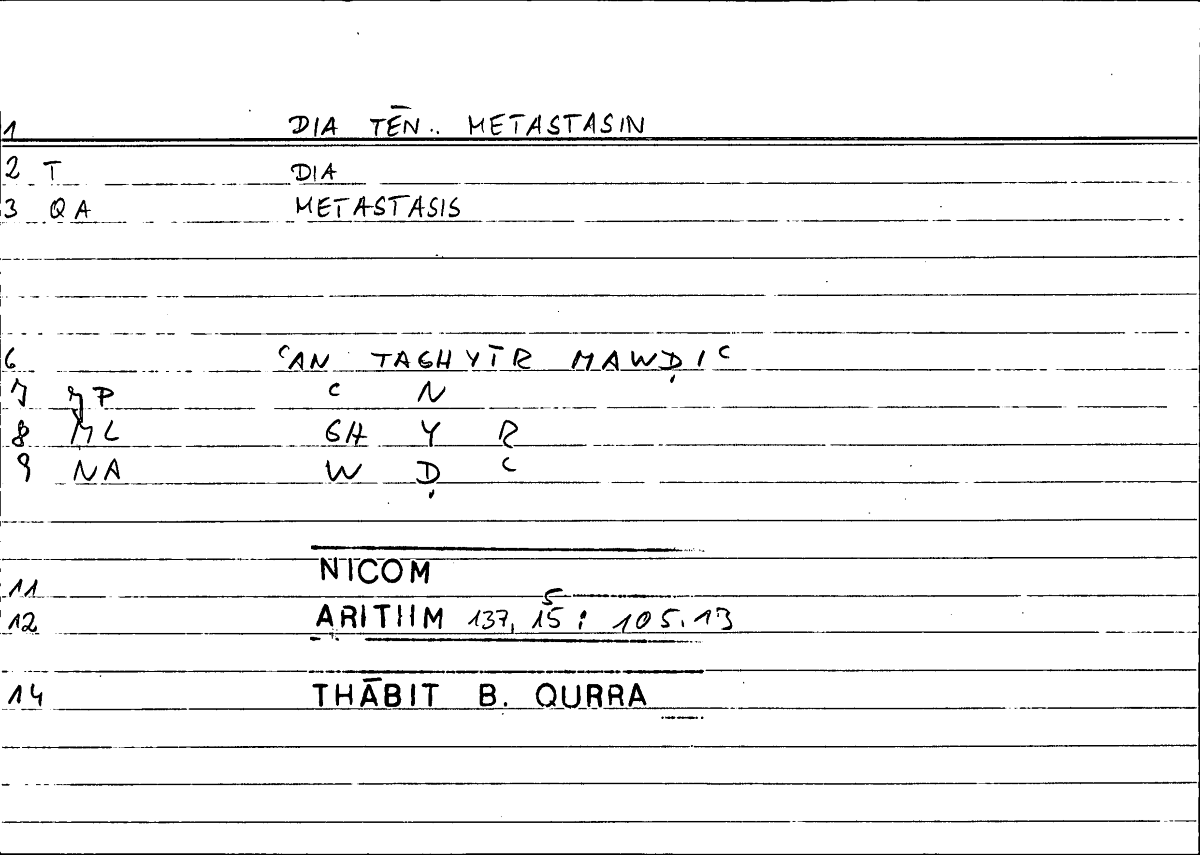 1 DIA TĒN.. METASTASIN
2 T DIA
3 QA METASTASIS
6 ʿAN TAGHYĪR MAWḌIʿ
7 ʿ N
8 ML GH Y R
9 NA W Ḍ ʿ
11 NICOM
12 ARITHM 137, 15 5 : 105.13
14 THĀBIT B. QURRA